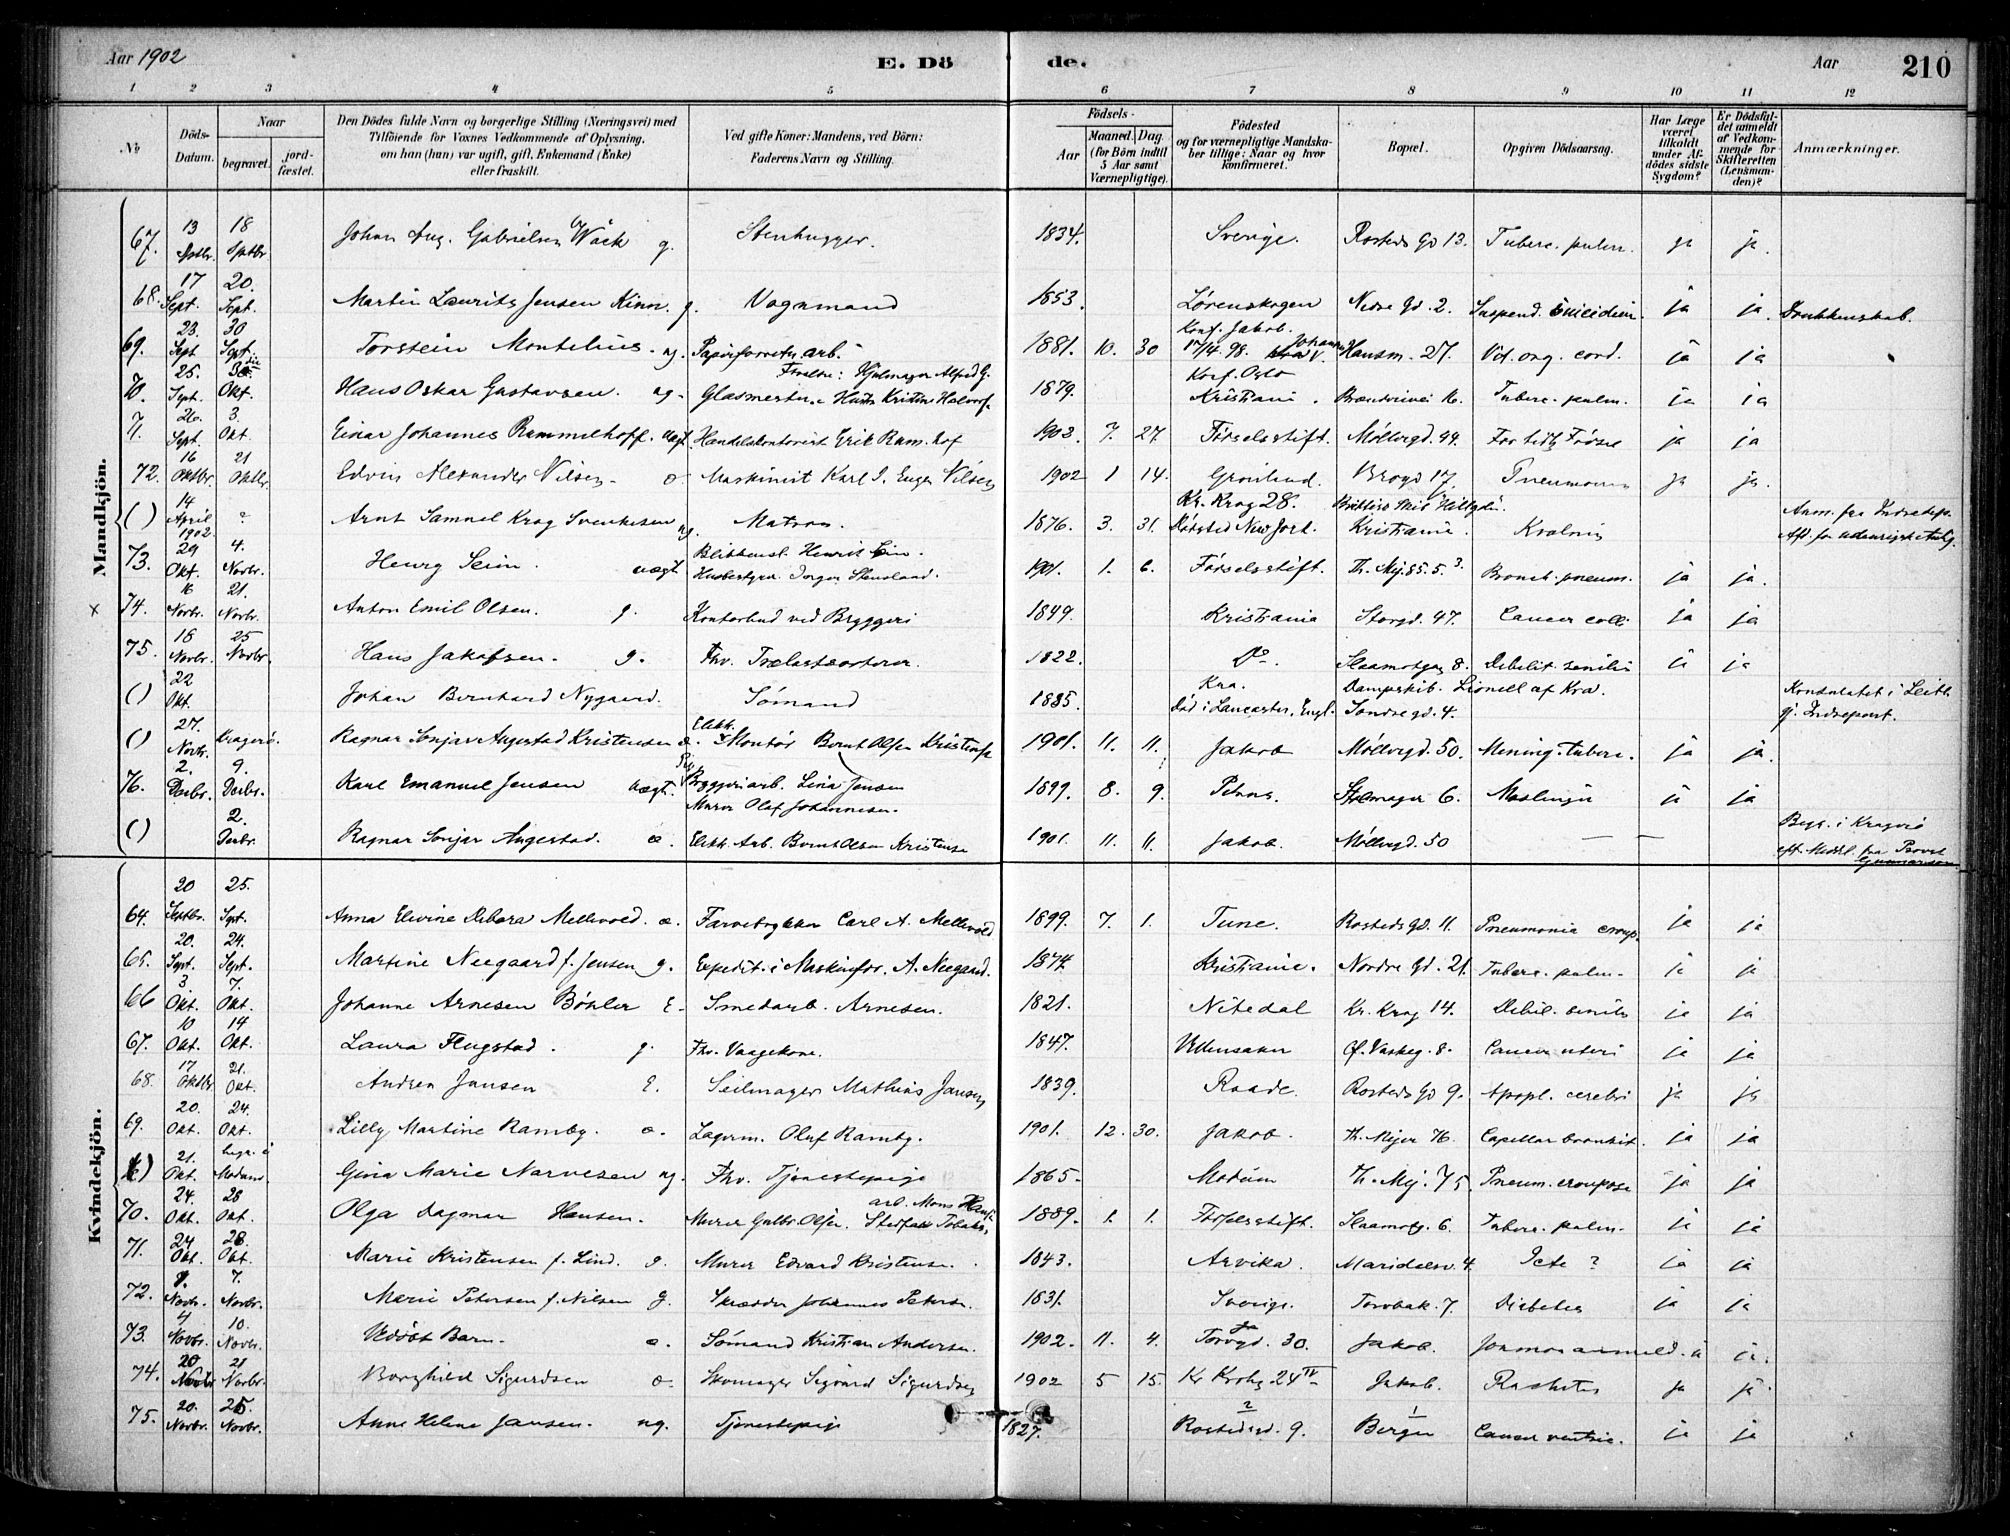 Aar 1902
E. Dö de.
Aar
210
1 2 3 4 5 6 7 8 9 10 11 12
No
Döds-Datum.
Naar
begravet.
jord-fæstet.
Den Dödes fulde Navn og borgerlige Stilling (Næringsvei) med
Tilföiende for Voxnes Vedkommende af Oplysning,
om han (hun) var ugift, gift, Enkemand (Enke)
eller fraskilt.
Ved gifte Koner: Mandens, ved Börn:
Faderens Navn og Stilling.
Födsels-
Aar
Maaned. Dag.
(for Börn indtil
5 Aar samt
Værnepligtige).
Födested
og for værnepligtige Mandska-
ber tillige: Naar og hvor
konfirmeret.
Bopæl.
Opgiven Dödsaarsag.
Har Læge
været
tilkaldt
under Af-
dödes sidste
Sygdom?
Er Dödsfal-
det anmeldt
af Vedkom-
mende for
Skifteretten
(Lensman-
den)?
Anmærkninger.
Mandkjön.
67. 13 Sptbr. 18 Sptbr Johan Aug. Gabrielsen Wåck g. Stenhugger. 1834. Sverige. Rosteds Gd 13. Tuberc. pulm. ja ja.
68. 17 Sept. 20. Sept. Martin Lauritz Jensen Kinn. g. Vognmand 1853. Lørenskogen Nedre Gd. 2. Suspend. Suicidium. ja ja. Drukkenskab.
69. 23. Sept 30 Sept Torstein Montelius. ug. arb. 1881. 10. 30 Konf. Jakob. 17/4 98. Hausm. 27. Vit. org. cord. ja ja
70. 25. Sept. Okt. Hans Oskar Gustavsen. ug. Glasmester 1879. Konf. Oslo Kristiania. 16. Tuberc. pulm. ja ja
71. 26. Sept. 3. Okt. Einar Johannes Rammelhoff. uægt. Handelskontorist Erik Ram.hof 1902. 7. 27. Fødselsstift. Møllergd. 44. For tidlig Fødsel ja ja
72. 16 Oktbr. 21 Oktbr. Edvin Alexander Nilsen æ. Maskinist Karl J. Nilsen 1902 1 14. Grønland. Brogd 17. Pneumonia ja ja.
() 14 April 1902. ? Arnt Samuel Krog Svenkesen ug. Matros. 1876. 3. 31. Kr. Krog 28. Dødsted New York. Kristiania.
73. 29 Okt. 4. Novbr. Henry Seim. uægt Henrik Seim. 1901. 1. 6. Fødselsstift. Th. Mej. 85. 5. Bronch. pneum. ja ja.
74. 16 Novbr. 21. Novbr. Anton Emil Olsen. g. Kontorbud ved Bryggeri 1849. Kristiania Storgd. 47. Cancer coli ja ja
75. 18 Novbr. 25 Novbr. Hans Jakobsen. g. Fhv. Trælastsorterer. 1822. Do. 8. Debilit. senilis ja ja
() 22 Okt. Johan Bernhard Nygaard. Sømand 1885. Kra. Død i Lancaster, Engl. Dampskib. Lionell af Kra. Søndregd. 4. Konsulatet i Leith gj. Indredepart.
() 27. Novbr. Kragerø. Ragnar Sonjar Augestad Kristensen æ. Elektr. Montør Bernt Olsen Kristensen 1901. 11. 11. Jakob Møllergd. 50. Mening. tuberc. ja ja.
76. 2. Decbr. 9. Decbr. Karl Emanuel Jensen uægt. Bryggeriarb. Lina Jensen Murer Olaf Johannesen. 1899. 8. 9. Petrus. 6. Meslinger ja ja
() 2. Decbr. Ragnar Sonjar Augestad. æ. Elektr. Arb. Bernt Olsen Kristensen 1901. 11. 11. Jakob. Møllergd. 50 — — Begr. i Kragerø eft. Meddel. fra Provst Gunnarson
Kvindekjön.
64. 20 Septbr. 25. Spt. Anna Elvine Debora Mellevold. æ. Carl A. Mellevold 1899. 7. 1. Tune. Rosteds Gd. 11. Pneumonia croup. ja ja
65. 20. Spt. 24. Sept. Martine Neegaard f. Jensen g. Expedit. i Maskinfor. A. Neegaard. 1874 Kristiania. Nordre Gd. 21. Tuberc. pulm. ja ja
66 3 Okt. 7. Okt. Johanne Arnesen Böhler E. Smedarb. Arnesen. 1821. Nitedal Kr. Krog 14. Debil. senilis ja ja
67. 10 Okt. 14 Okt. Laura Flugstad. g. Fhv. Vaagekone. 1847. Ullensaker 8. Cancer uteri ja ja
68. 17 Oktbr 21. Okt. Andrea Jansen E. Seilmager Mathias Jansen 1839. Raade. Rosteds Gd 9. Apopl. cerebri ja ja
69. 20. Okt. 24. Okt. Lilly Martine Ramby. æ. Lagerm. Oluf Ramby. 1901. 12. 30. Jakob. Th. Mejer 76. Capillar bronkit. ja ja
() 21. Okt. begr. i Modum. Gina Marie Narvesen ug. Fhv. Tjenestepige 1865. Modum Th. Mej. 75. Pneum. croupøse ja ja
70. 24. Okt. 28 Okt. Olga Dagmar Hansen. Murer Gulbr. Olsen. arb. Mons Hans. 1889. 1. 1. Fødselsstift. 6. Tuberc. pulm. ja ja
71. 24 Okt. 28. Okt. Marie Kristensen f. Lind. g. Murer Edvard Kristensen. 1843. Arvika. Maridalsv. 4. Icte ? ja ja
72. Novbr. 7. Novbr. Marie Petersen f. Nilsen g. Skrædder Johannes Petersen 1831. Sverige. Torvbak. 7. Diabetes ja ja
73. Novbr. 10. Novbr. Udøbt Barn. æ. Sømand Kristian Andersen. 1902. 11. 4. Torvgd. 30. Jakob. ja.
74. 20 Novbr 21 Novbr. Borghild Sigurdsen æ. Skomager Sigvard Sigurdsen 1902 5 15. Kr Krohg 24 IV Jakob. Rachitis ja ja.
75. 20. Novbr. 25. Novbr. Anne Helene Jansen. ug. Tjenestepige 1827. 2 Rostedsgd. 9. 1 Bergen Cancer ventric. ja ja